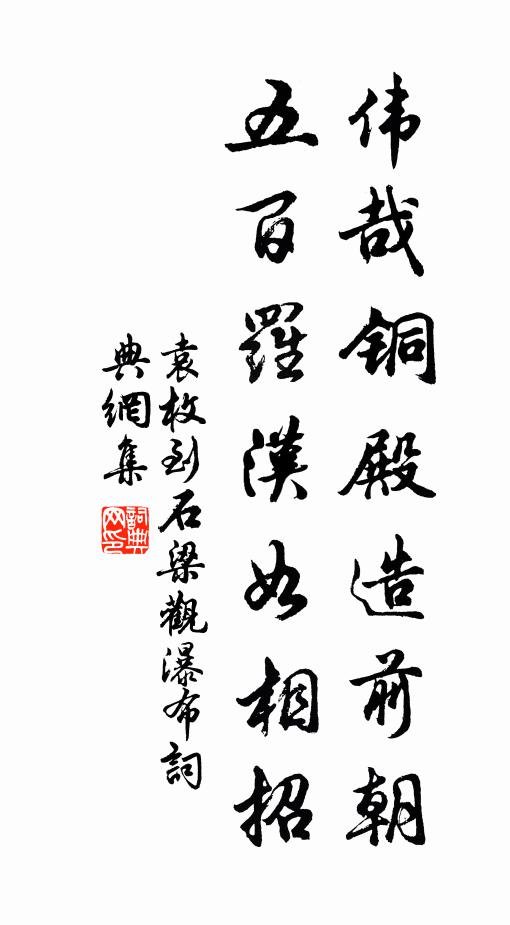 伟哉铜殿造前朝
五百羅漢如相招
袁枚到石梁觀瀑布詞
典網集
詞典网印